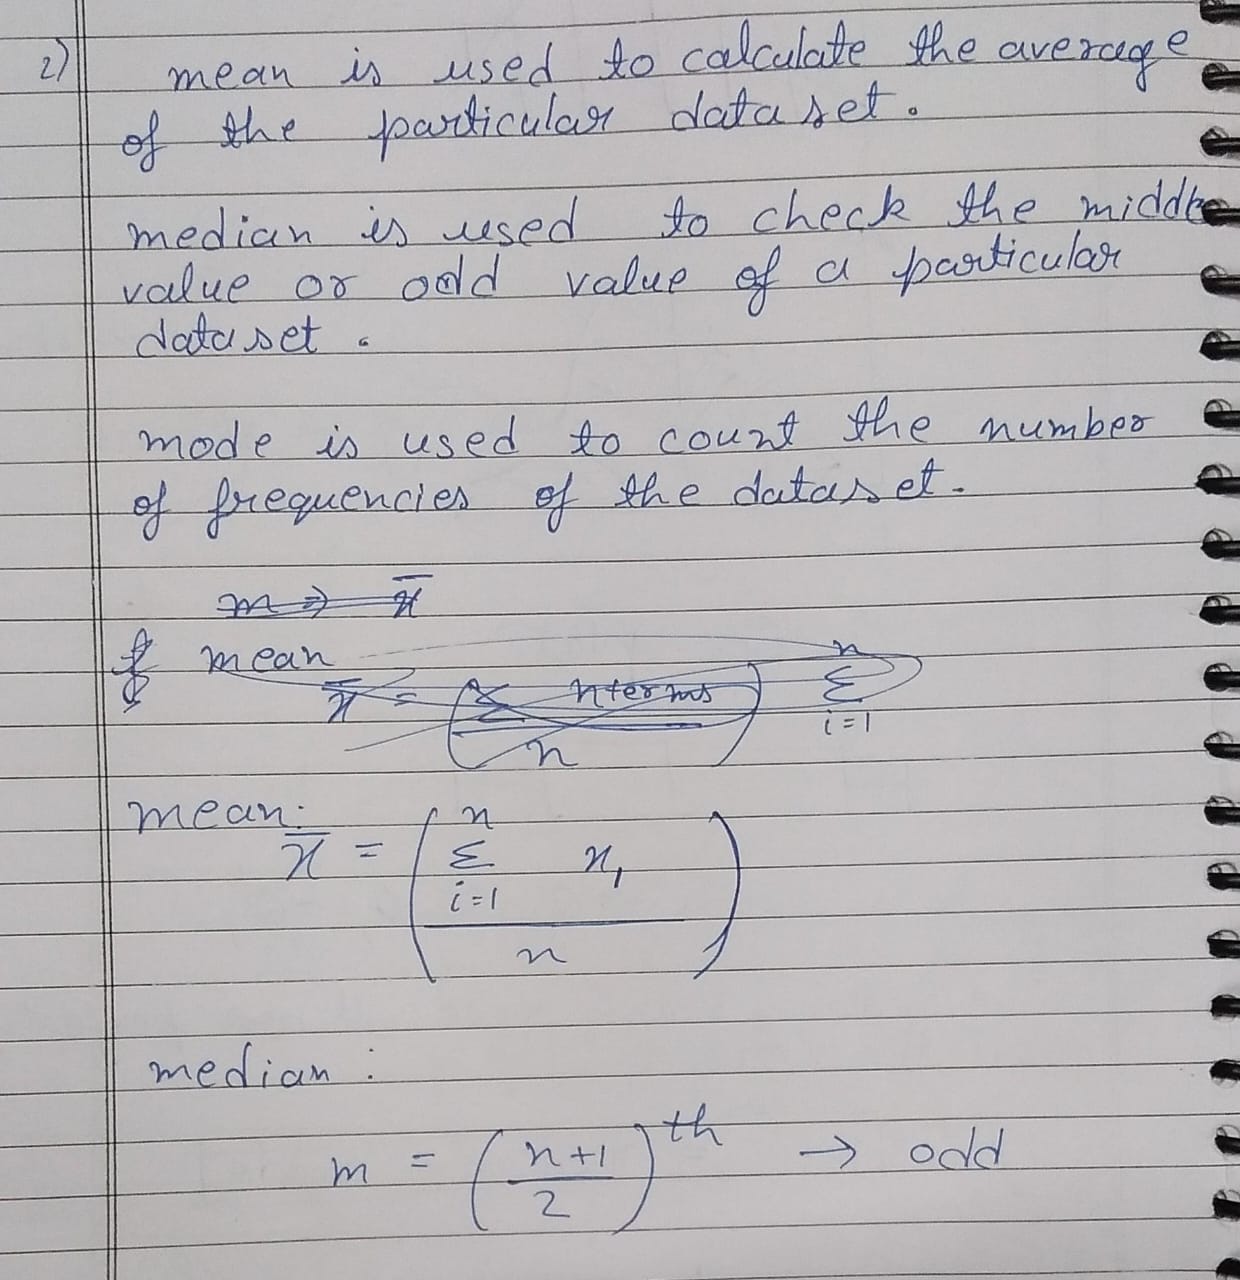 2) mean is used to calculate the average
of the particular dataset.
median is used to check the middle
value or odd value of a particular
dataset.
mode is used to count the number
of frequencies of the dataset.
m ⇒ x̄
mean
x̄ = (Σ n terms / n) n Σ i=1
mean:
x̄ = ( n Σ i=1 x₁ / n )
median :
m = ( n+1 / 2 )th → odd